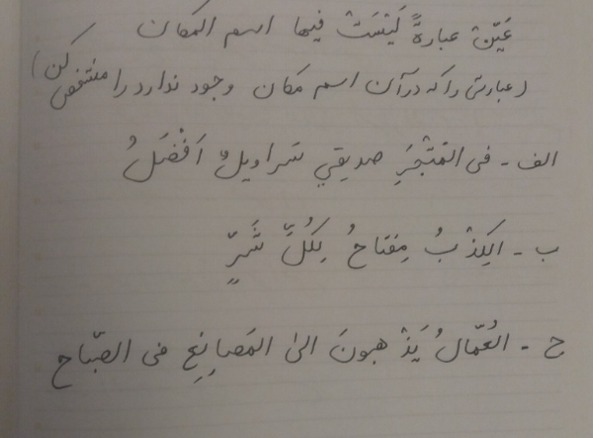 عَيِّنْ عبارةً لَيْسَتْ فيها اسم المكان
(عبارتی را که در آن اسم مکان وجود ندارد را مشخص کن)
الف - فی المَتْجَرِ صديقي سَراويلٌ اَفْضَلُ
ب - الكِذْبُ مِفتاحُ لِكُلِّ شَرٍّ
ج - العُمّالُ يَذْهبونَ الیٰ المَصانِعِ فی الصّباح